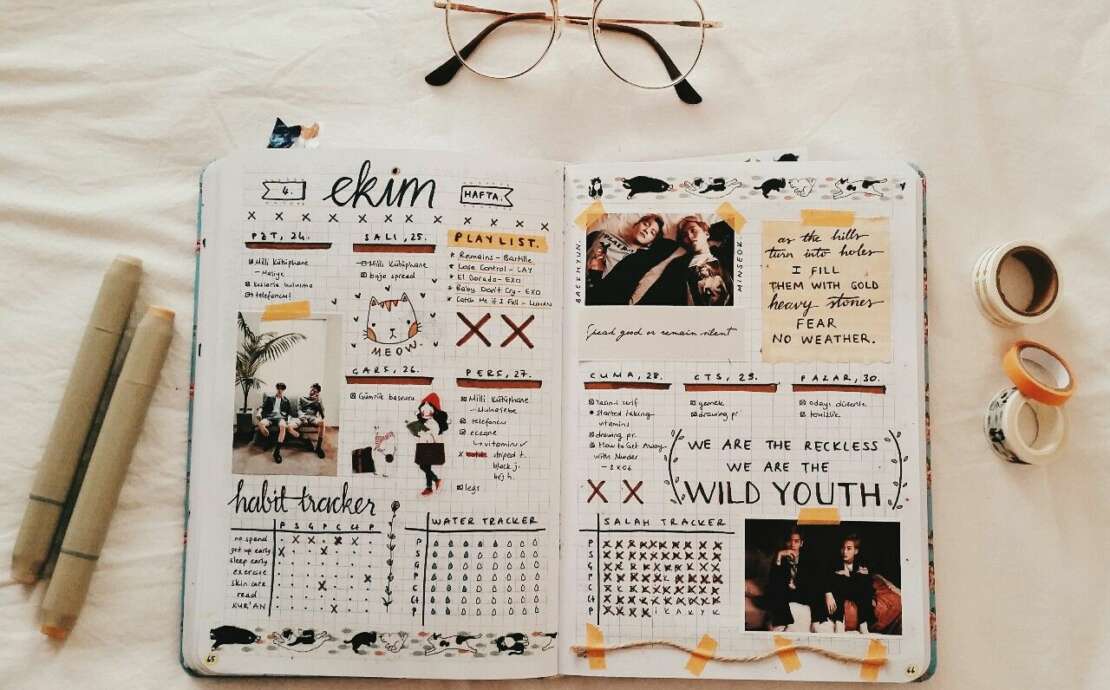 4.
ekim
HAFTA.
PZT, 24.
Milli Kütüphane
- Maliye
telefoncu!
SALI, 25.
Milli Kütüphane
bujo spread
PLAYLIST.
Remains - Bastille
Lose Control - LAY
El Dorado - EXO
Baby Don't Cry - EXO
Catch Me if I Fall - LUHAN
MEOW.
ÇARŞ, 26.
Gümrük başvuru
PERŞ, 27.
Milli Kütüphane
- Muhasebe
telefoncu
eczane
vitamin ✓
striped t.
black j.
bej h.
habit tracker
P S Ç P C Ct P
no spend
get up early
sleep early
exercise
skin care
read
KUR'AN
WATER TRACKER
P
S
Ç
P
C
Ct
P
65
BAEKHYUN.
MINSEOK.
as the hills
turn into holes
I FILL
THEM WITH GOLD
heavy stones
FEAR
NO WEATHER.
read good or remain silent
CUMA, 28.
started taking
vitamins
drawing pr.
How to Get Away
with Murder
- 2x06
CTS, 29.
yemek
drawing pr.
PAZAR, 30.
odayı düzenle
temizlik
WE ARE THE RECKLESS
WE ARE THE
WILD YOUTH
SALAH TRACKER
P
S
Ç
P
C
Ct
P
66